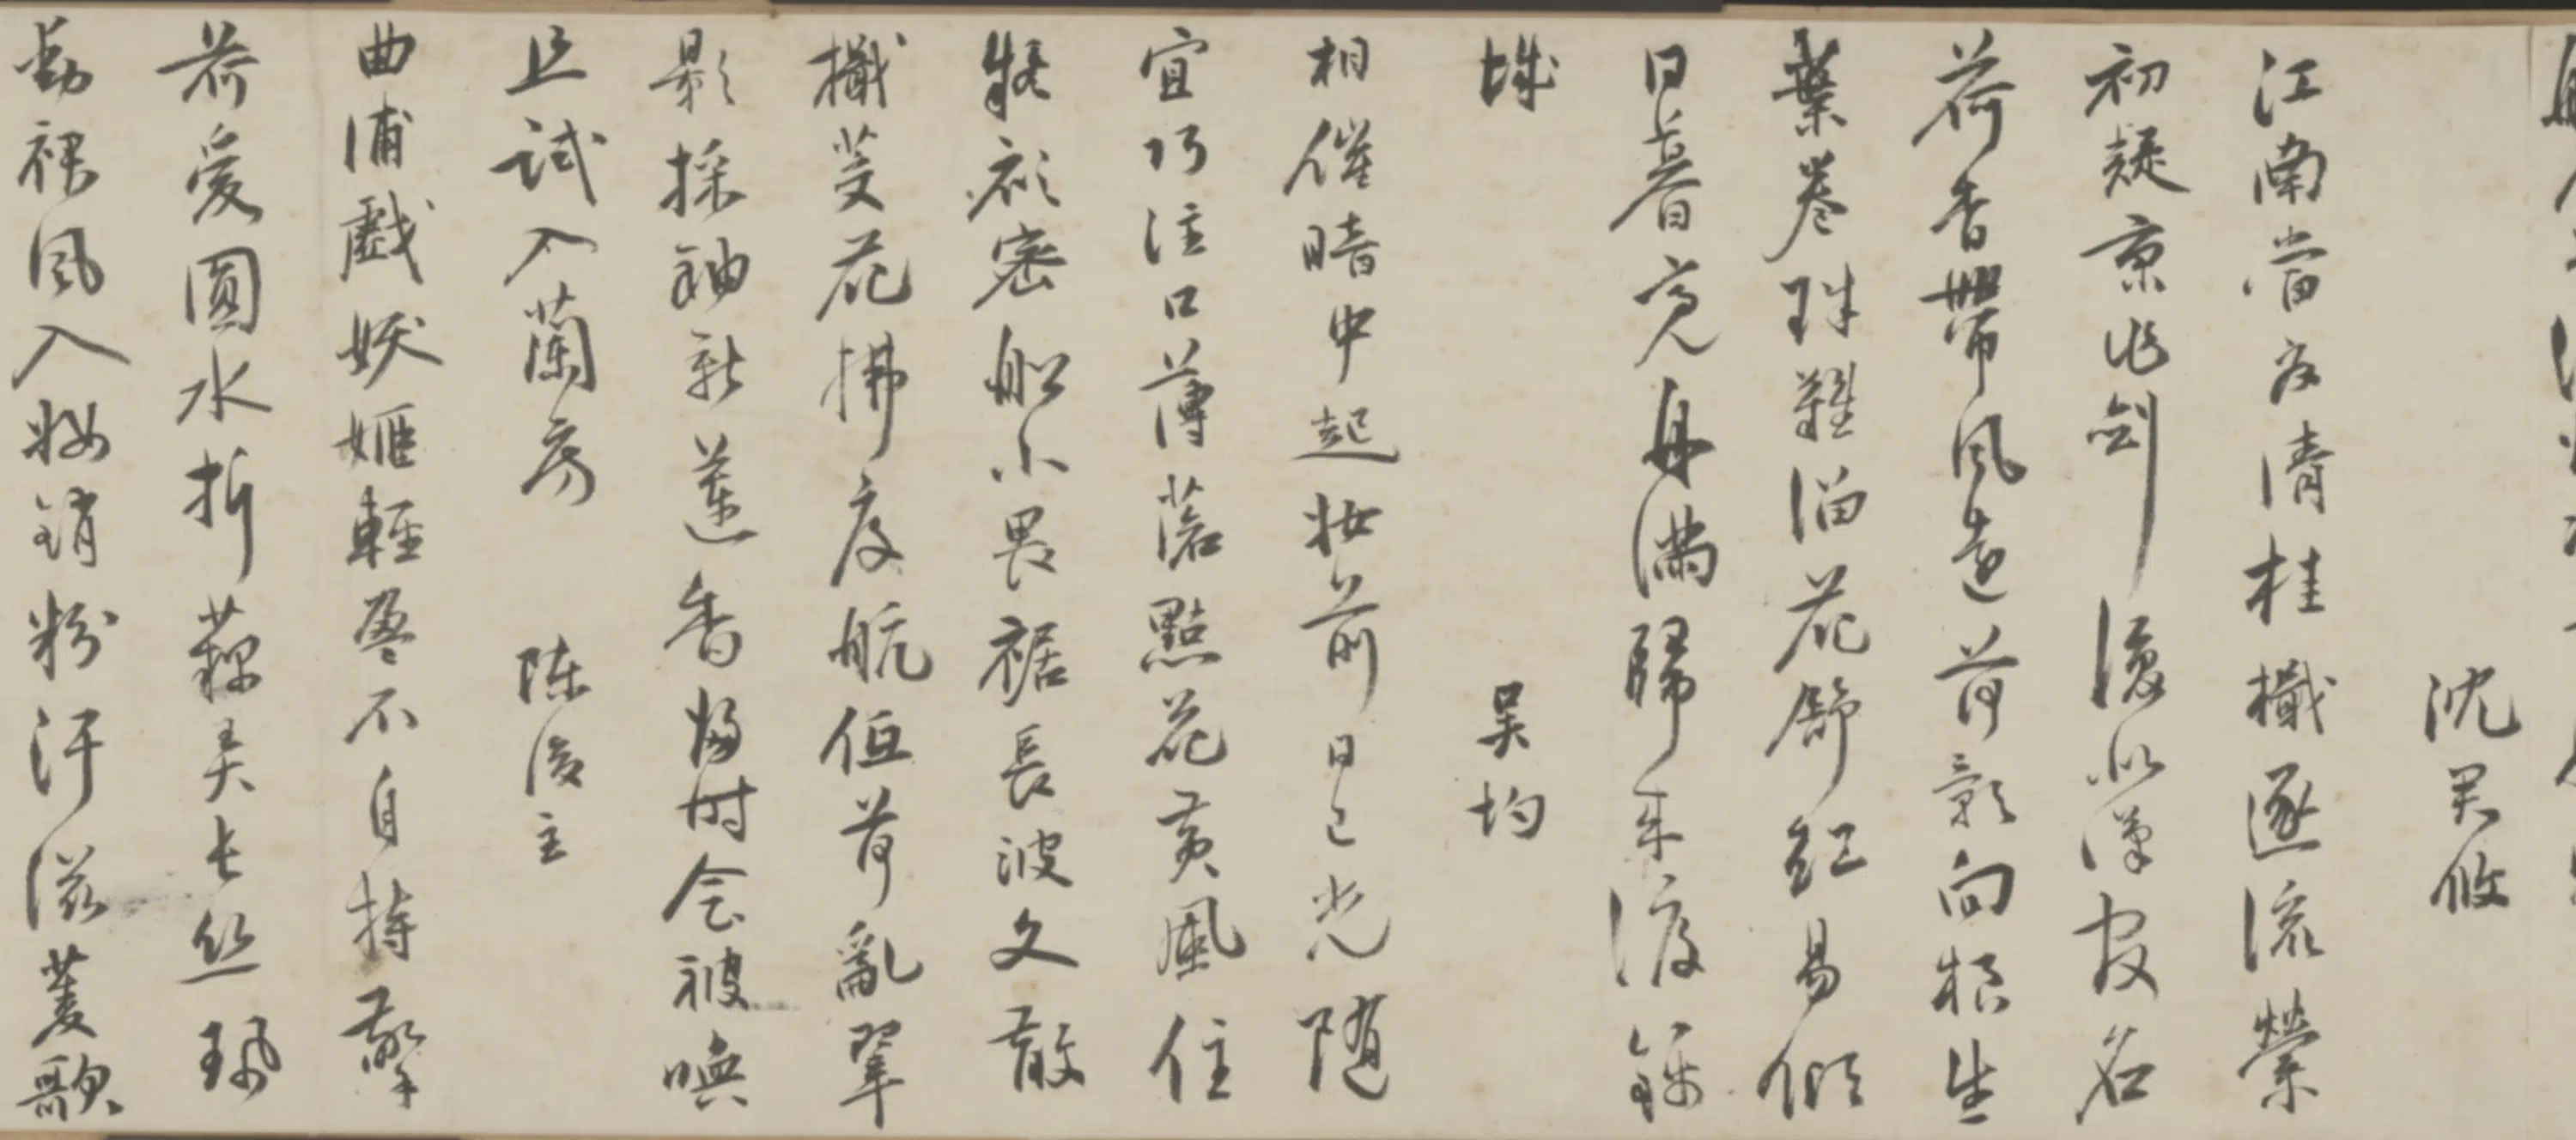 沈君攸
江南當夏清桂檝逐流縈
初疑京兆劍復似漢冠名
荷香帶風遠荷影向根生
葉卷珠難溜花舒紅易傾
日暮亮舟滿歸來渡錦
城
吳均
相催暗中起妝前日已光隨
宜巧注口薄落點花黃風住
粧顏密船小畏裾長波文散
檝芰花拂度航值荷亂翠
影採袖新蓮香歸時会被喚
且試入蘭房
陳後主
曲浦戲妖姬輕盈不自持擎
荷愛圓水折藕弄長丝珮
動裙風入妝銷粉汗滋菱歌